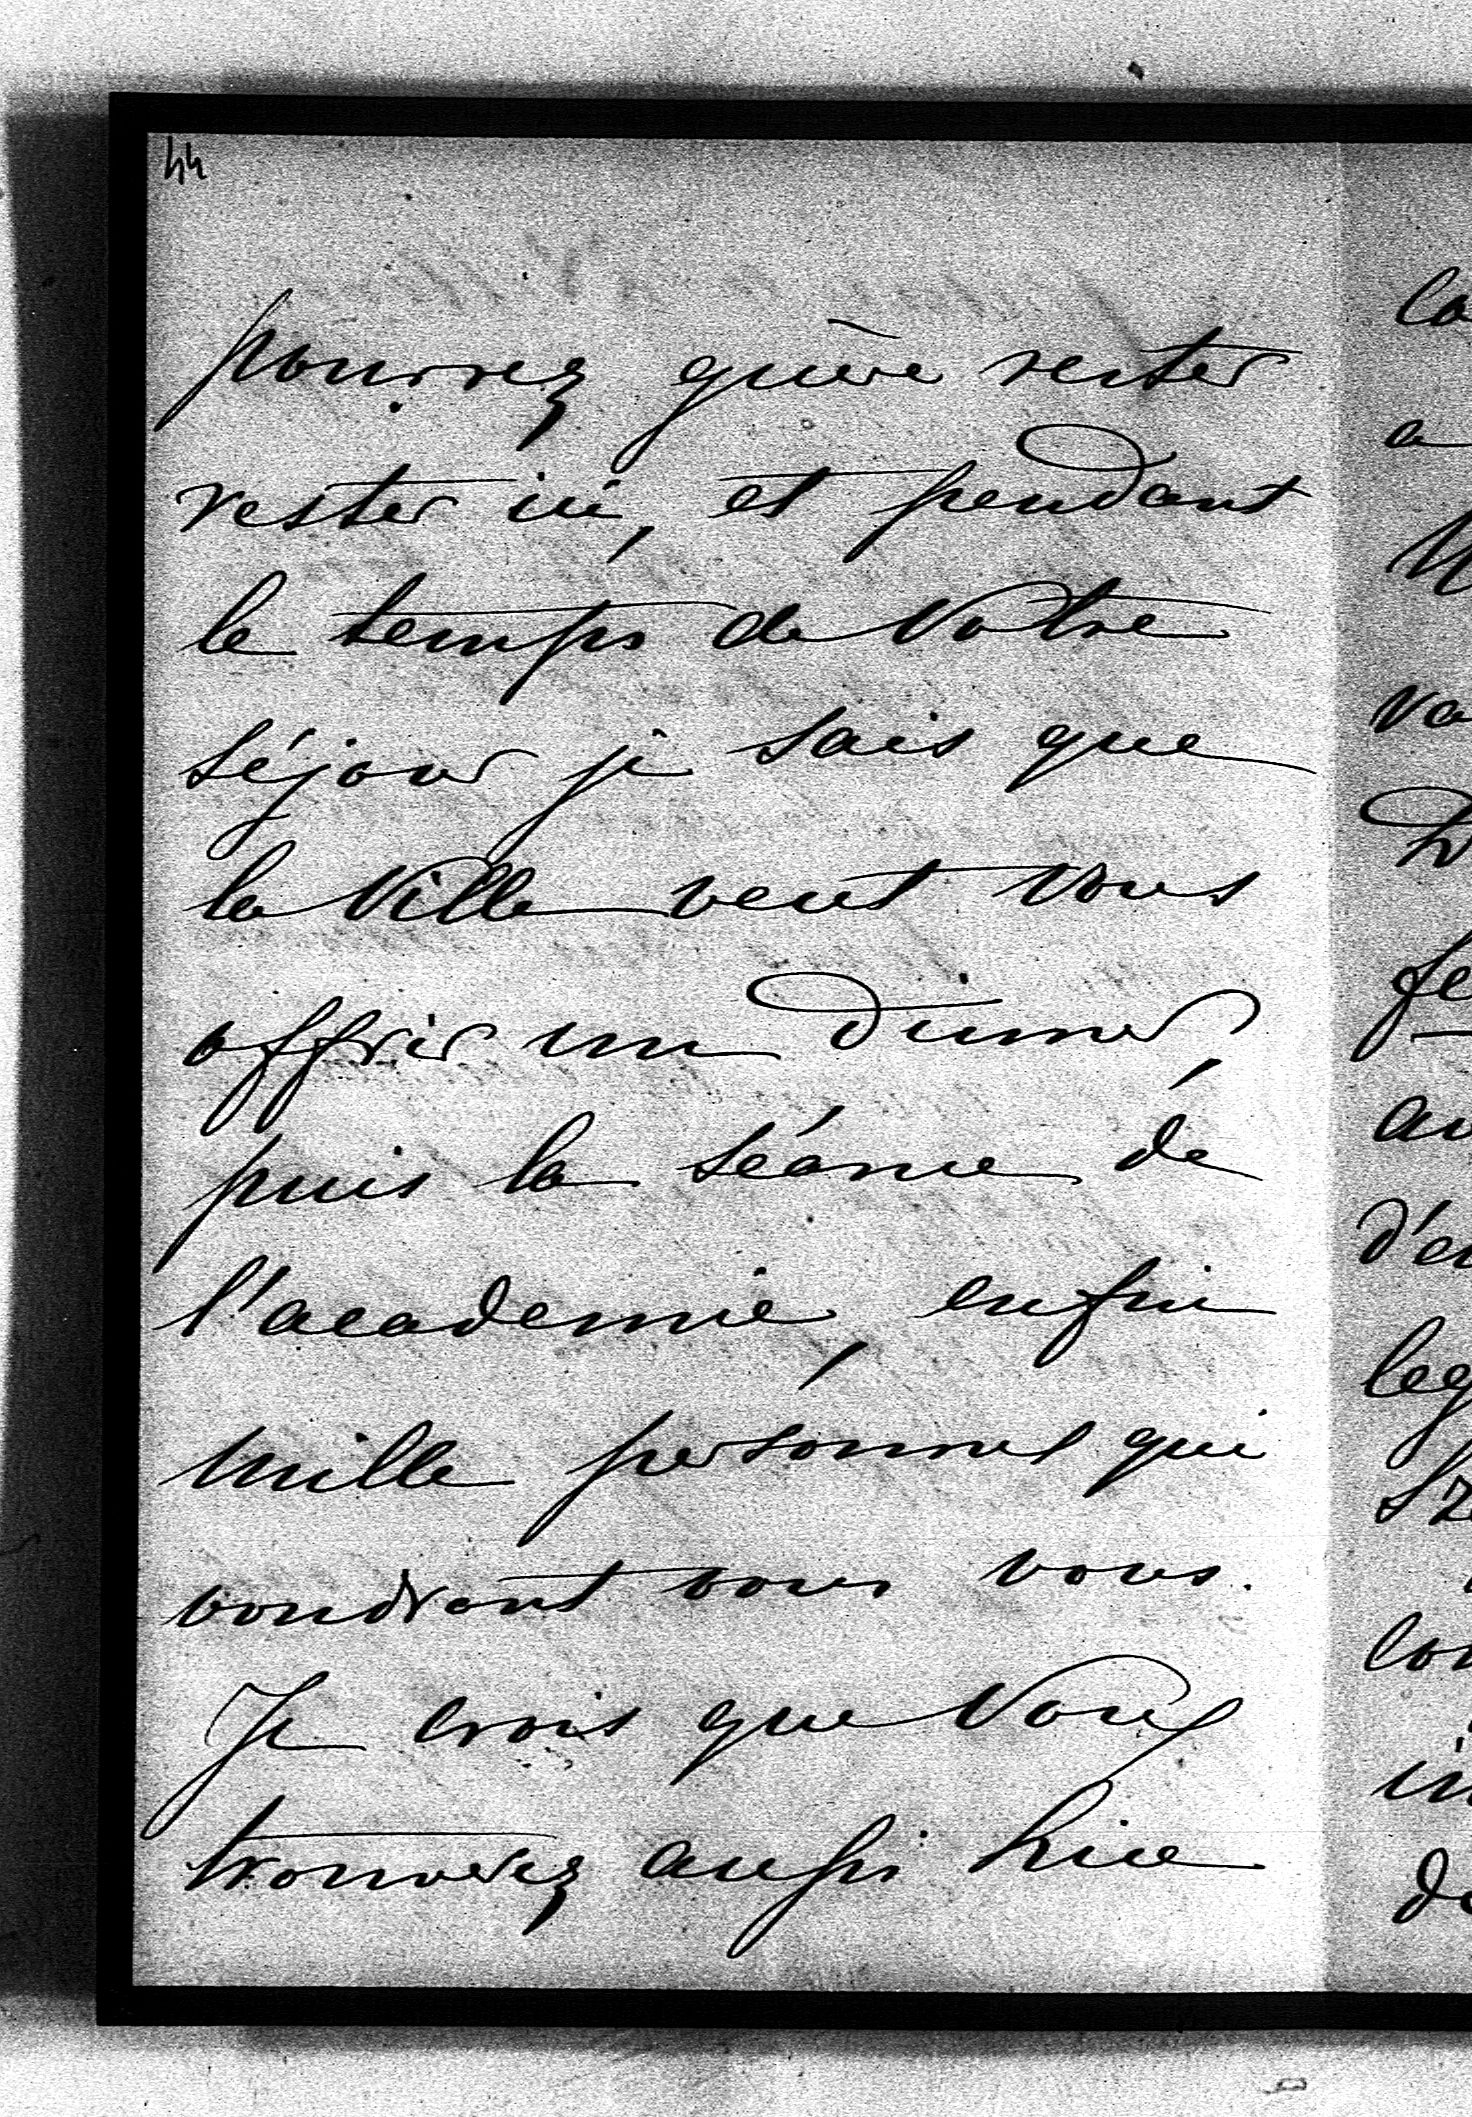 44
pourrez guère rester
rester ici, et pendant
le temps de Votre
séjour je sais que
la Ville veut Vous
offrir un diner,
puis la séance de
l'academie, enfin
mille personnes qui
voudront vous vous.
Je crois que Vous
trouverez aussi